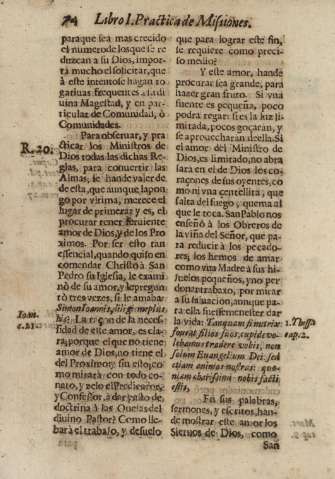 74 Libro I. Practica de Missiones.
para que sea mas crecido
el numero de los que se re
duzcan a su Dios, impor
ta mucho el solicitar, que
à este intento se hagan ro
gatiuas frequentes à la di
uina Magestad, y en par
ticular de Comunidad, ò
Comunidades.
R. 20.
Para obseruar, y pra
cticar los Ministros de
Dios todas las dichas Re
glas, para conuertir las
Almas, se han de valer de
de esta, que aunque la pon
go por vltima, merece el
lugar de primera: y es, el
procurar tener feruiente
amor de Dios, y de los Pro
ximos. Por ser esto tan
essencial, quando quiso en
comendar Christo à San
Pedro su Iglesia, le exami
nò de su amor, y le pregun
tò tres vezes, si le amaba:
Ioan.
c. 21.
Simon Ioannis, diligis me plus
his? La razon de la neces
sidad de este amor, es cla
ra; porque el que no tiene
amor de Dios, no tiene el
del Proximo; y sin ello, co
mo mirarà con todo co
nato, y zelo el Predicador,
y Confessor, à dar pasto de
doctrina à las Ouejas del
diuino Pastor? Como lle
barà el trabajo, y desuelo
que para lograr este fin,
se requiere como preci
so medio?
Y este amor, han de
procurar sea grande, para
hazer gran fruto. Si vna
fuente es pequeña, poco
podrà regar: si es la luz li
mitada, pocos goçaràn, y
se aprouecharàn de ella. Si
el amor del Ministro de
Dios, es limitado, no abra
sarà en el de Dios los co
raçones de sus oyentes, co
mo ni vna centellita, que
salta del fuego, quema al
que le toca. San Pablo nos
enseñò à los Obreros de
la viña del Señor, que pa
ra reducir à los pecado
res, los hemos de amar
como vna Madre à sus hi
juelos pequeños, y no per
donar trabajo, por mirar
à su saluacion, aunque pa
ra ella fuesse menester dar
la vida: Tanquam si nutrix
1. Thess.
cap. 2.
foueat filios suos, cupide vo
lebamus tradere vobis, non
solum Euangelium Dei: sed
etiam animas nostras: quo-
niam charissimi nobis facti
estis,
En sus palabras,
sermones, y escritos, han
de mostrar este amor los
Sieruos de Dios, como
San